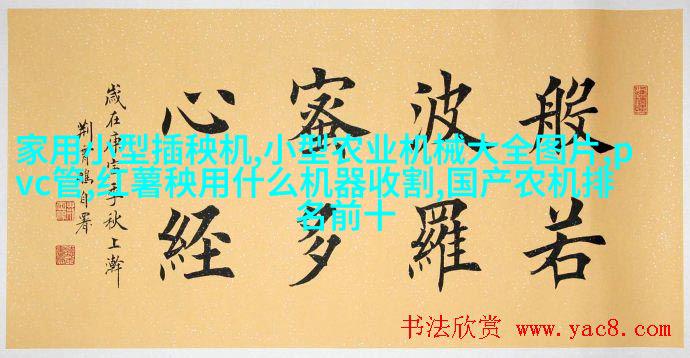 般若
波羅
蜜多
心經
歲在庚寅年秋上澣
荆霄鵬自署
家用小型插秧机,小型农业机械大全图片,p
vc管,红薯秧用什么机器收割,国产农机排
名前十
书法欣赏 www.yac8.com